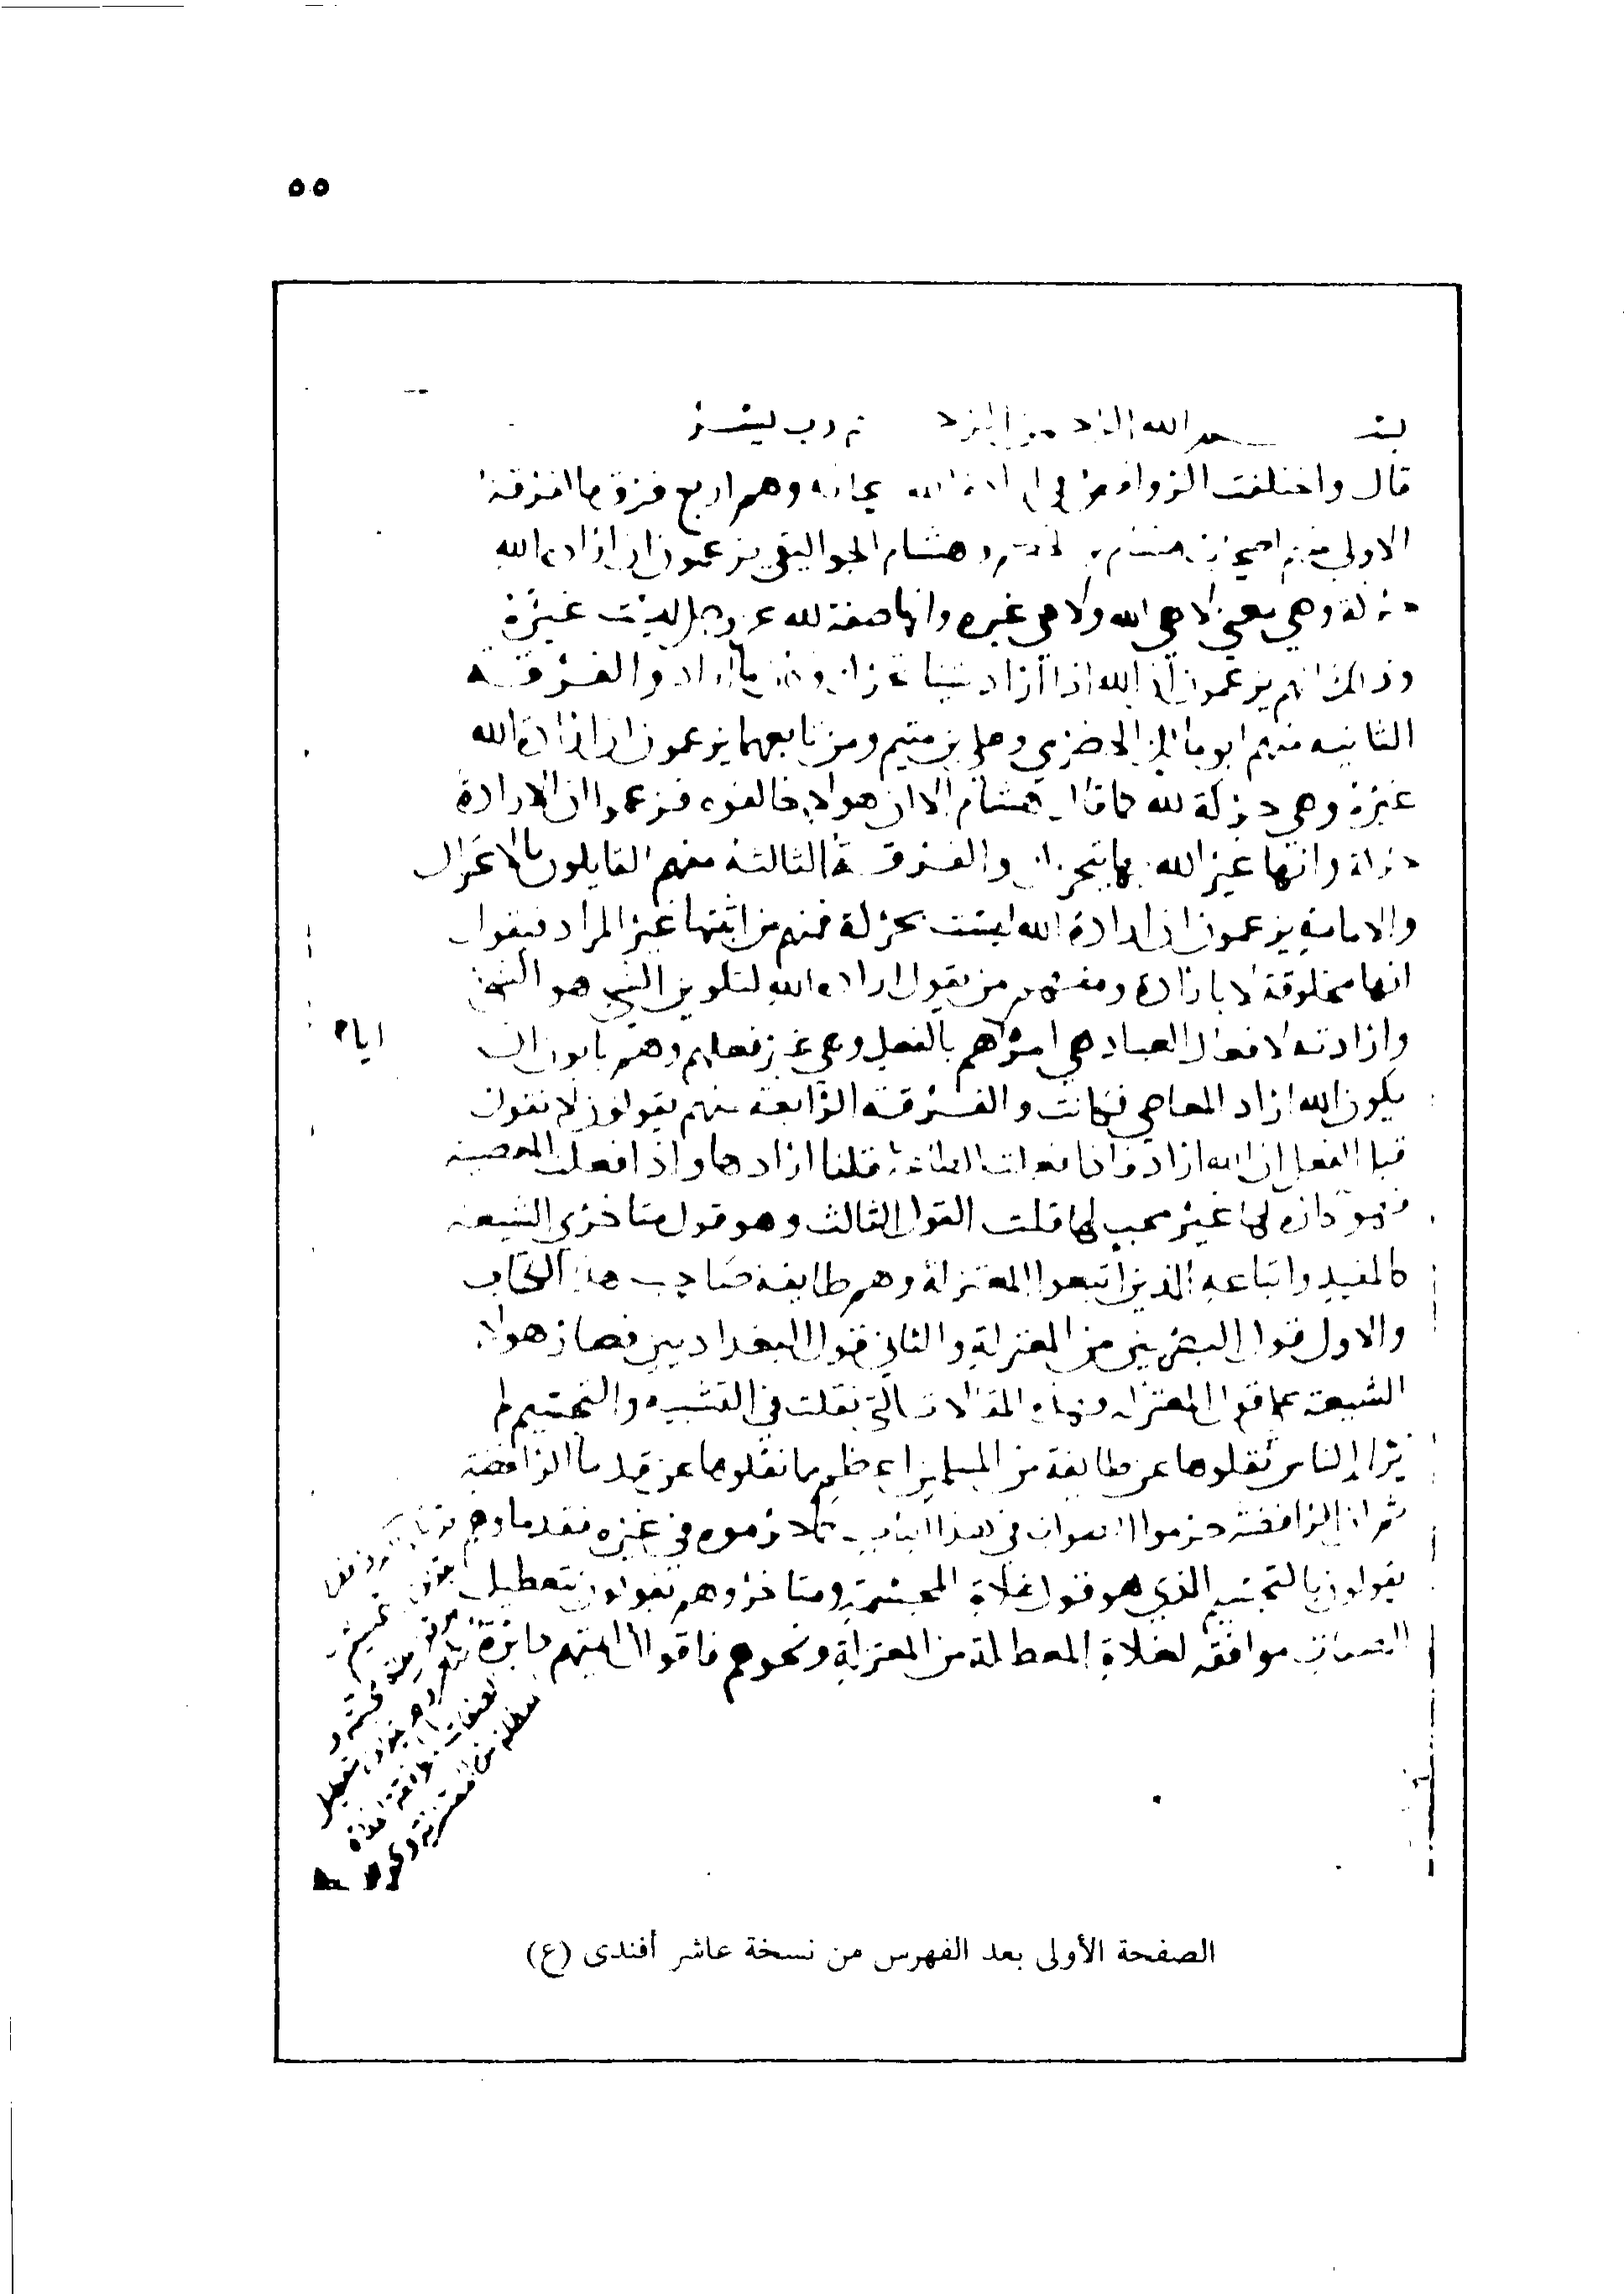 ٥٥
بسم الله الرحمن الرحيم رب يسر
قال واختلفت الروافض في ارادة الله سبحانه وهم اربع فرق فالفرقة
الاولى منهم اصحاب هشام بن الحكم وهشام الجواليقي يزعمون ان ارادة الله
حركة وهي معنى لا هي الله ولا هي غيره وانها صفة لله عز وجل ليست غيره
وذلك انهم يزعمون ان الله اذا اراد شيئا تحرك فكان ما اراد والفرقة
الثانيه منهم ابو مالك الحضرمي وعلي بن ميثم ومن تابعهما يزعمون ان ارادة الله
غيره وهي حركة لله كما قال هشام الا ان هولاء خالفوه فزعموا ان الارادة
حركة وانها غير الله بها يتحرك والفرقة الثالثة منهم القايلون بالاعتزال
والامامة يزعمون ان ارادة الله ليست بحركة فمنهم من اثبتها غير المراد فيقول
انها مخلوقة لا بارادة ومنهم من يقول ارادة الله لتكوين الشي هو الشي
وارادته لافعال العباد هي امره اياهم بالفعل وهي غير فعلهم وهم يابون ان
يكون الله اراد المعاصي فكانت والفرقة الرابعة منهم يقولون لا نقول
قبل الفعل ان الله اراد فاذا فعلت الطاعة قلنا ارادها واذا فعلت المعصية
فهو كاره لها غير محب لها قلت القول الثالث وهو قول متاخرى الشيعة
كالمفيد واتباعه الذين اتبعوا المعتزلة وهم طايفة صاحب هذا الكتاب
والاول قول البصريين من المعتزلة والثاني قول البغداديين فصار هولاء
الشيعة على قول المعتزلة وهذه المقالات التي نقلت في التشبيه والتجسيم لم
نر الناس نقلوها عن طايفة من المسلمين اعظم مما نقلوها عن قدماء الرافضة
ثم ان الرافضة حرموا الصواب في هذا الباب كما حرموه في غيره فقدماوهم
يقولون بالتجسيم الذي هو قول غلاة المجسمة ومتاخروهم يقولون بتعطيل
الصفات موافقة لغلاة المعطلة من المعتزلة ونحوهم فاقوال ايمتهم دايرة
الصفحة الأولى بعد الفهرس من نسخة عاشر أفندى (ع)